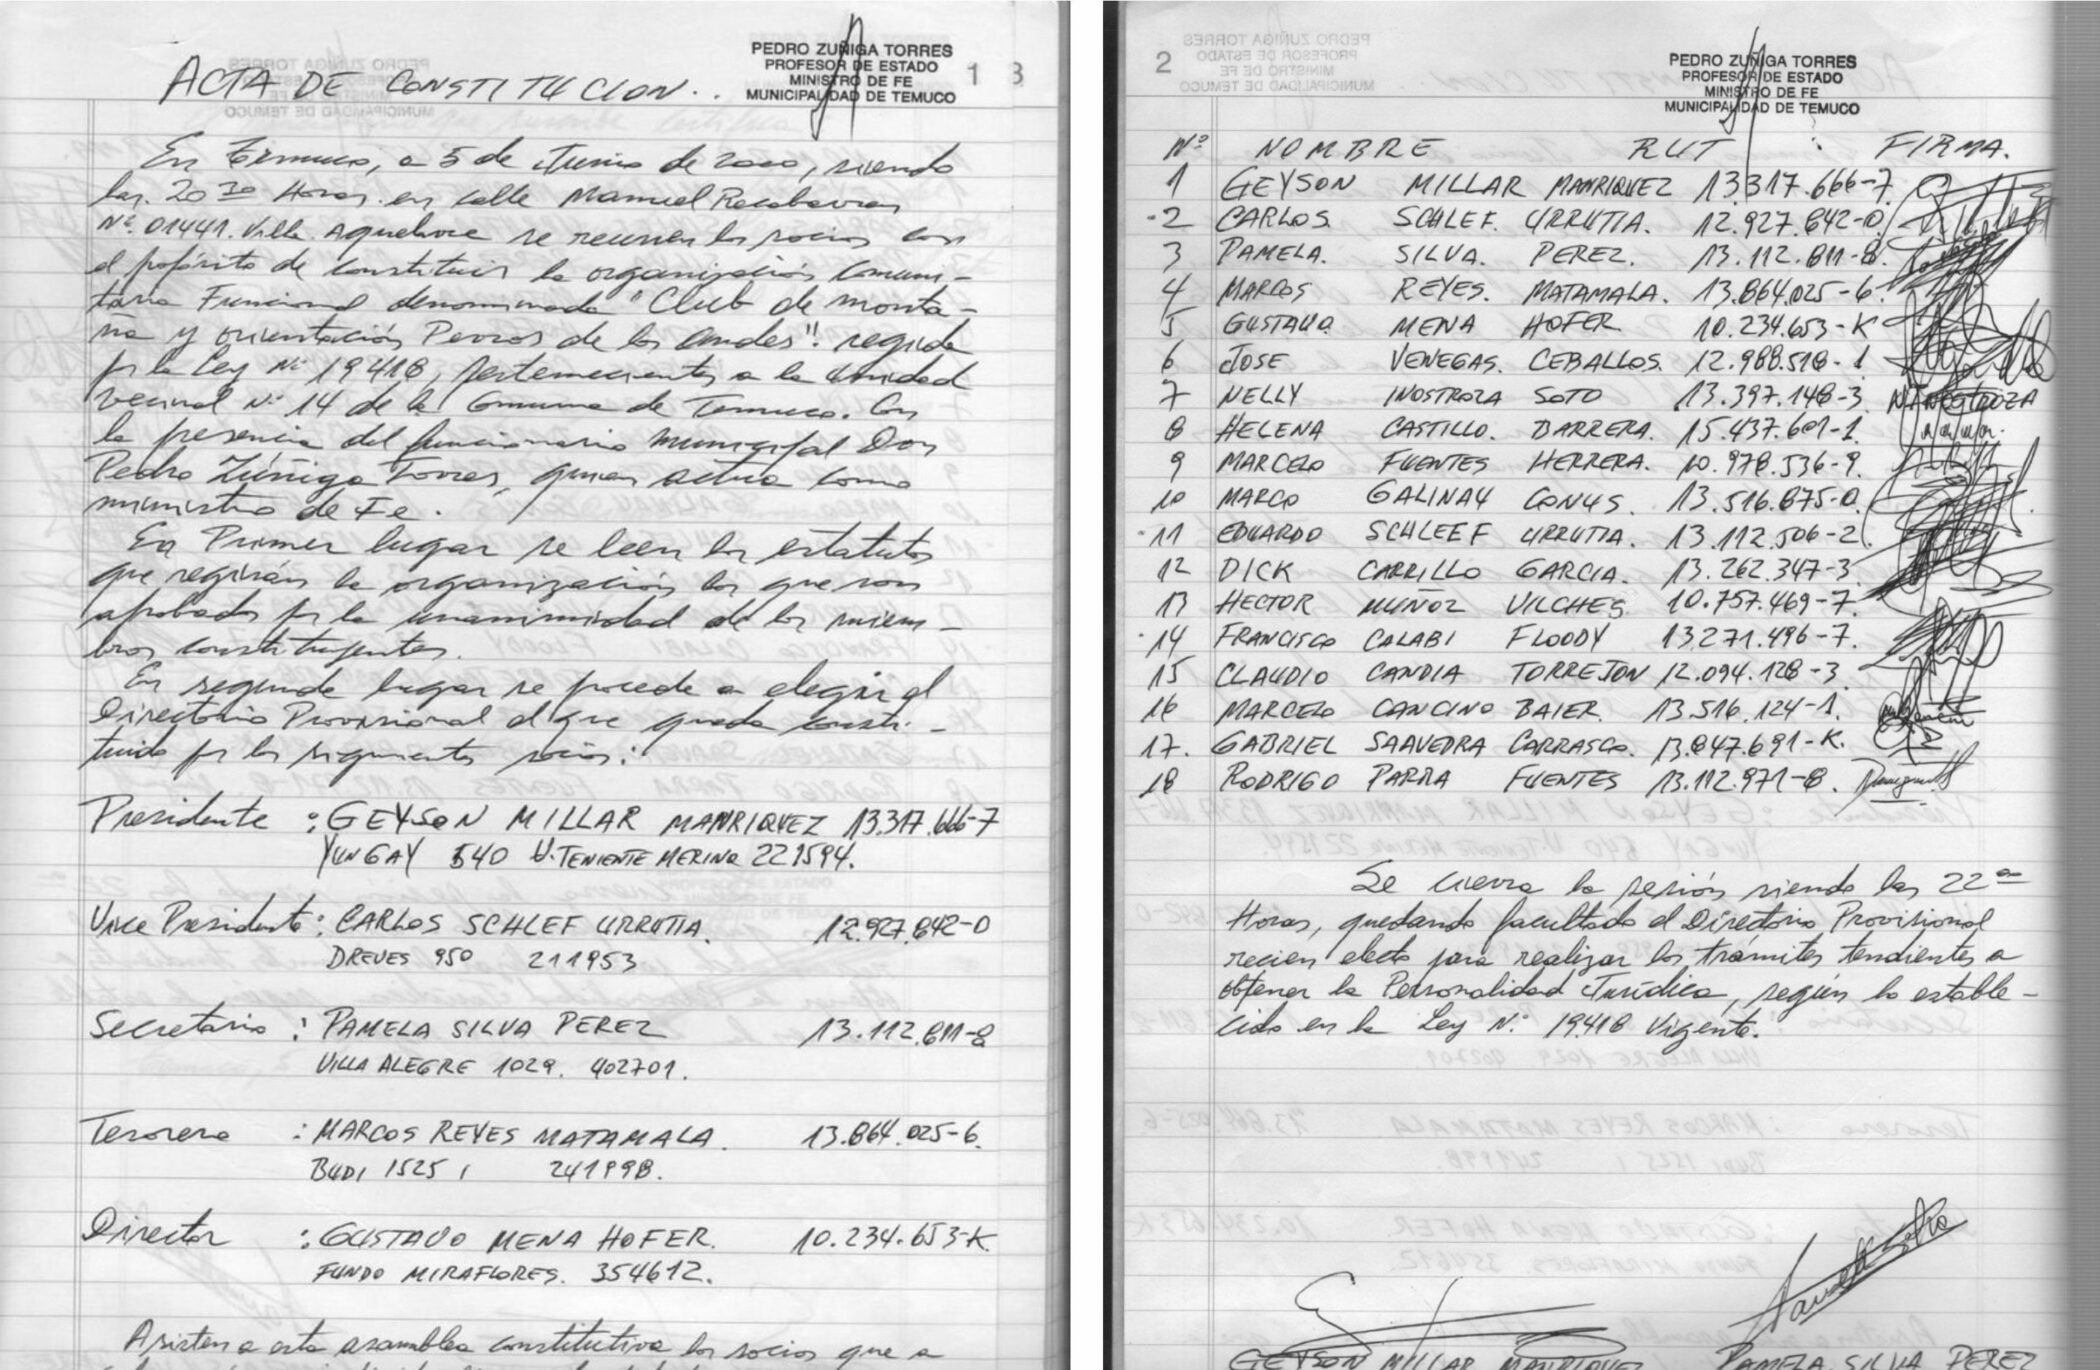 ACTA DE CONSTITUCION..
PEDRO ZUÑIGA TORRES
PROFESOR DE ESTADO
MINISTRO DE FE
MUNICIPALIDAD DE TEMUCO
1
En Temuco, a 5 de Junio de 2000, siendo
las 20 30 Horas en calle Manuel Recabarren
Nº 01441. Villa se reunen los socios con
el propósito de constituir la organización comuni-
taria Funcional denominada "Club de monta-
ña y orientación Perros de los Andes". regida
por la Ley Nº 19418, pertenecientes a la Unidad
vecinal Nº 14 de la Comuna de Temuco. Con
la presencia del funcionario Municipal Don
Pedro Zúñiga Torres, quien actua como
ministro de Fe.
En Primer lugar se leen los estatutos
que regirán la organización los que son
aprobados por la unanimidad de los miem-
bros constituyentes.
En segundo lugar se procede a elegir el
Directorio Provisional el que queda consti-
tuido por los siguientes socios:
Presidente : GEYSON MILLAR MANRIQUEZ 13.317.666-7
YUNGAY 540 V. TENIENTE MERINO 221594.
Vice Presidente : CARLOS SCHLEF URRUTIA. 12.927.642-0
DREVES 950 211953
Secretario : PAMELA SILVA PEREZ 13.112.811-8
VILLA ALEGRE 1029. 402701.
Tesorero : MARCOS REYES MATAMALA. 13.864.025-6.
BUDI 1525 241998.
Director : GUSTAVO MENA HOFER. 10.234.653-K
FUNDO MIRAFLORES. 354612.
Asisten a esta asamblea constitutiva los socios que a
2
PEDRO ZUÑIGA TORRES
PROFESOR DE ESTADO
MINISTRO DE FE
MUNICIPALIDAD DE TEMUCO
Nº NOMBRE RUT : FIRMA.
1 GEYSON MILLAR MANRIQUEZ 13.317.666-7
2 CARLOS. SCHLEF. URRUTIA. 12.927.642-0
3 PAMELA. SILVA. PEREZ. 13.112.811-8.
4 MARCOS REYES. MATAMALA. 13.864.025-6.
5 GUSTAVO. MENA HOFER 10.234.653-K
6 JOSE VENEGAS. CEBALLOS. 12.988.518-1
7 NELLY INOSTROZA SOTO 13.397.148-3 N INOSTROZA
8 HELENA CASTILLO. BARRERA. 15.437.601-1.
9 MARCELO FUENTES HERRERA. 10.978.536-9.
10 MARCO GALINAY CONUS. 13.516.875-0.
11 EDUARDO SCHLEEF URRUTIA. 13.112.506-2
12 DICK CARRILLO GARCIA. 13.262.347-3
13 HECTOR MUÑOZ VILCHES. 10.757.469-7.
14 FRANCISCO CALABI FLOODY 13.271.496-7.
15 CLAUDIO CANDIA TORREJON 12.094.128-3
16 MARCELO CANCINO BAIER. 13.516.124-1.
17. GABRIEL SAAVEDRA CARRASCO. 13.847.691-K.
18 RODRIGO PARRA FUENTES 13.112.971-8.
Se cierra la sesión siendo las 22 oo
Horas, quedando facultado el Directorio Provisional
recien electo para realizar los trámites tendientes a
obtener la Personalidad Jurídica, según lo estable-
cido en la Ley Nº 19418 Vigente.
GEYSON MILLAR MANRIQUEZ PAMELA SILVA PEREZ